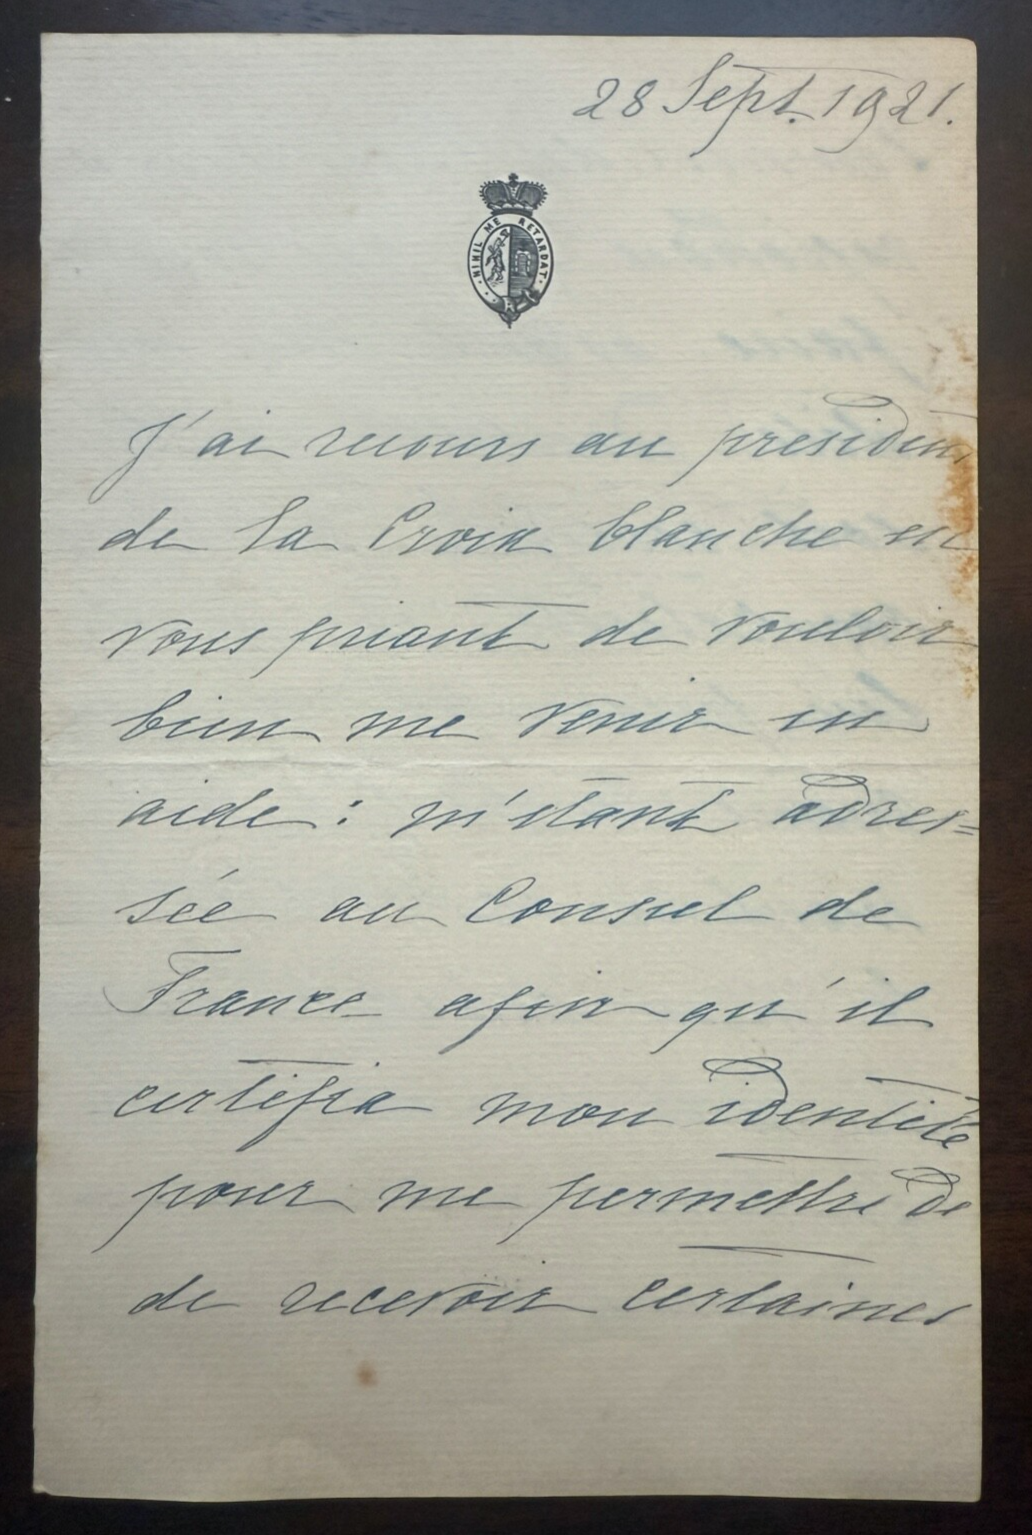 28 Sept. 1921.
NIHIL ME RETARDAT
J'ai recours au president
de la Croix blanche en
vous priant de vouloir
bien me venir en
aide : m'étant adres=
sée au Consul de
France afin qu'il
certifia mon identité
pour me permettre de
de recevoir certaines